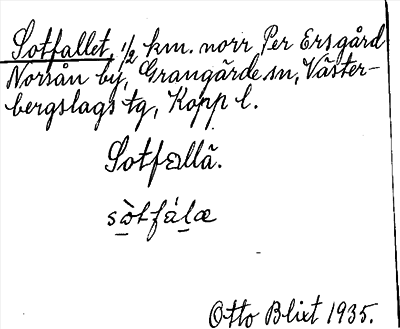 Sotfallet, 1/2 km. norr Per Ersgård
Norsån by, Grangärde sn, Väster-
bergslags tg, Kopp l.
Sotfallä.
sòtfálæ
Otto Blixt 1935.